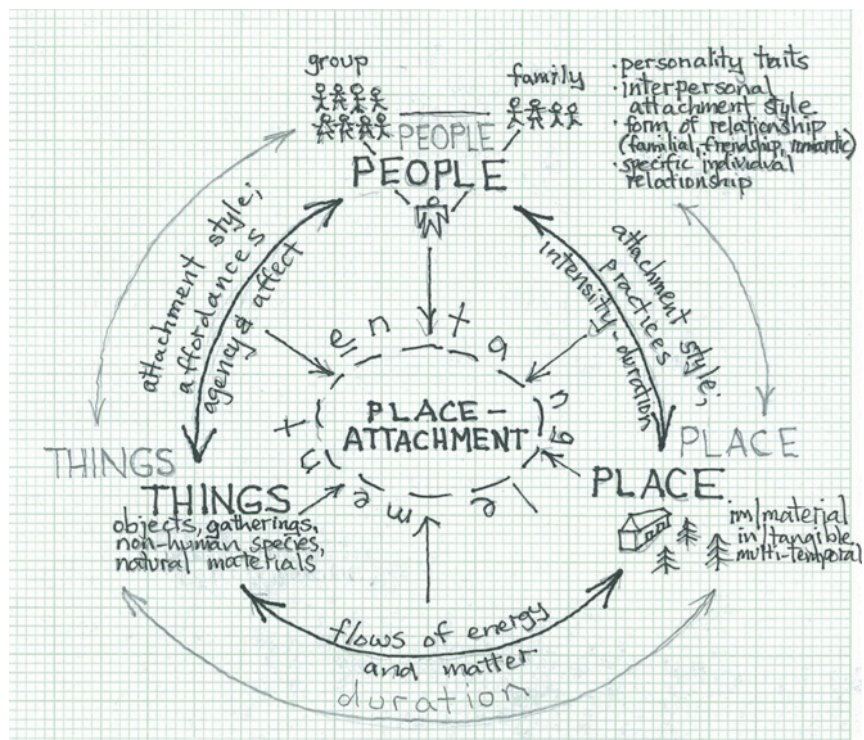 group
family
· personality traits
· interpersonal
attachment style
· form of relationship
(familial, friendship, romantic)
· specific individual
relationship
PEOPLE
PEOPLE
attachment style;
affordances
agency & affect
attachment style;
practices
intensity-duration
entanglement
PLACE-
ATTACHMENT
THINGS
THINGS
objects, gatherings,
non-human species,
natural materials
PLACE
PLACE
im/material
in/tangible
multi-temporal
flows of energy
and matter
duration